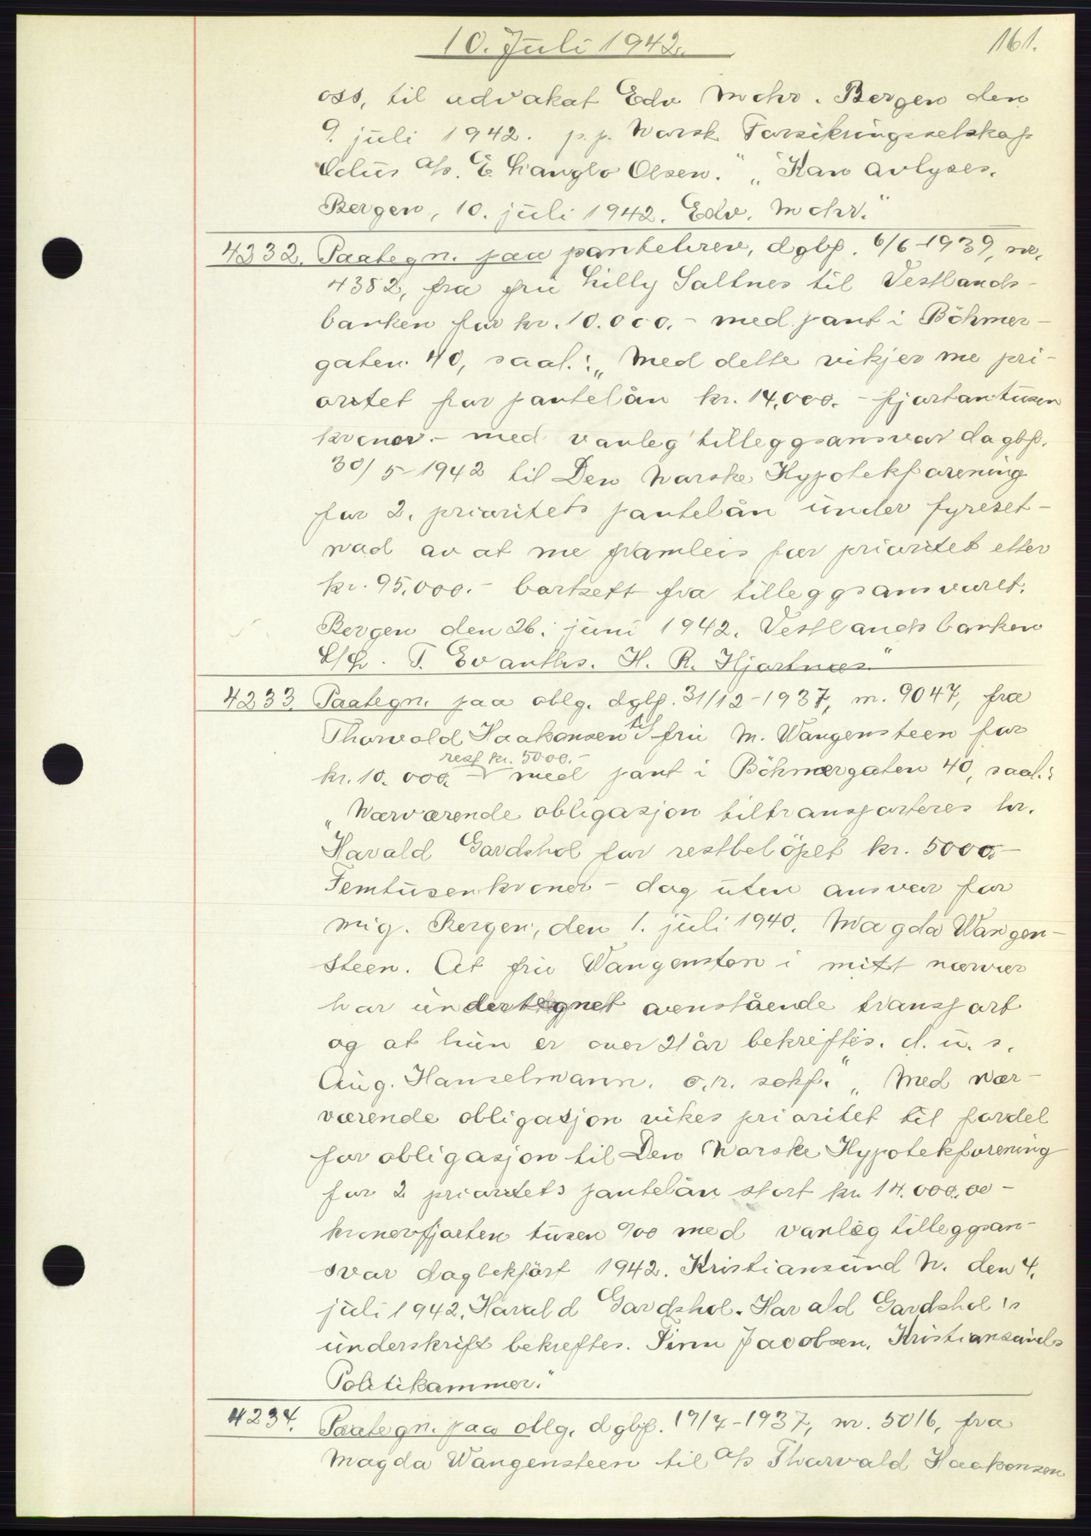 10. Juli 1942.
161.
oss, til advokat Edv Mohr. Bergen den
9. juli 1942. p.p. Norsk Forsikringsselskap
Æolus a/s. E. Langlo Olsen." "Kan avlyses.
Bergen, 10. juli 1942. Edv. Mohr."
4232. Paategn. paa pantebrev, dgbf. 6/6-1939, nr.
4382, fra fru Lilly Saltnes til Vestlands-
banken for kr. 10.000.- med pant i Böhmer-
gaten 40, saal.: "Med dette vikjer me pri-
oritet for pantelån kr. 14.000.- fjortantusen
kroner.- med vanleg tilleggsansvar dagbf.
30/5-1942 til Den Norske Hypotekforening
for 2. prioritets pantelån under fyreset-
nad av at me framleis får prioritet etter
kr. 95.000.- bortsett fra tilleggsansvaret.
Bergen den 26. juni 1942. Vestlandsbanken
L/L. T. Evanths. H. R. Hjartnæs."
4233. Paategn. paa oblg. dgbf. 31/12-1937, nr. 9047, fra
Thorvald Haakonsen til fru M. Wangensteen for
rest kr. 5000.-
kr. 10.000.- med pant i Böhmergaten 40, saal.:
"Nærværende obligasjon tiltransporteres hr.
Harald Gardshol for restbelöpet kr. 5000.-
Femtusenkroner - dog uten ansvar for
mig. Bergen, den 1. juli 1940. Magda Wangen-
steen. At fru Wangensten i mitt nærvær
har undertegnet ovenstående transport
og at hun er over 21 år bekreftes. d.u.s.
Aug. Hanselmann. o.r. sakf." "Med nær-
værende obligasjon vikes prioritet til fordel
for obligasjon til Den Norske Hypotekforening
for 2 prioritets pantelån stort kr. 14.000.00-
kronerfjorten tusen 0/00 med vanlig tilleggsan-
svar dagbokfört 1942. Kristiansund N. den 4.
juli 1942. Harald Gardshol. Harald Gardshol's
underskrift bekreftes. Finn Jacobsen. Kristiansunds
Politikammer."
4234. Paategn. paa oblg. dgbf. 17/7-1937, nr. 5016, fra
Magda Wangensteen til a/s Thorvald Haakonsen